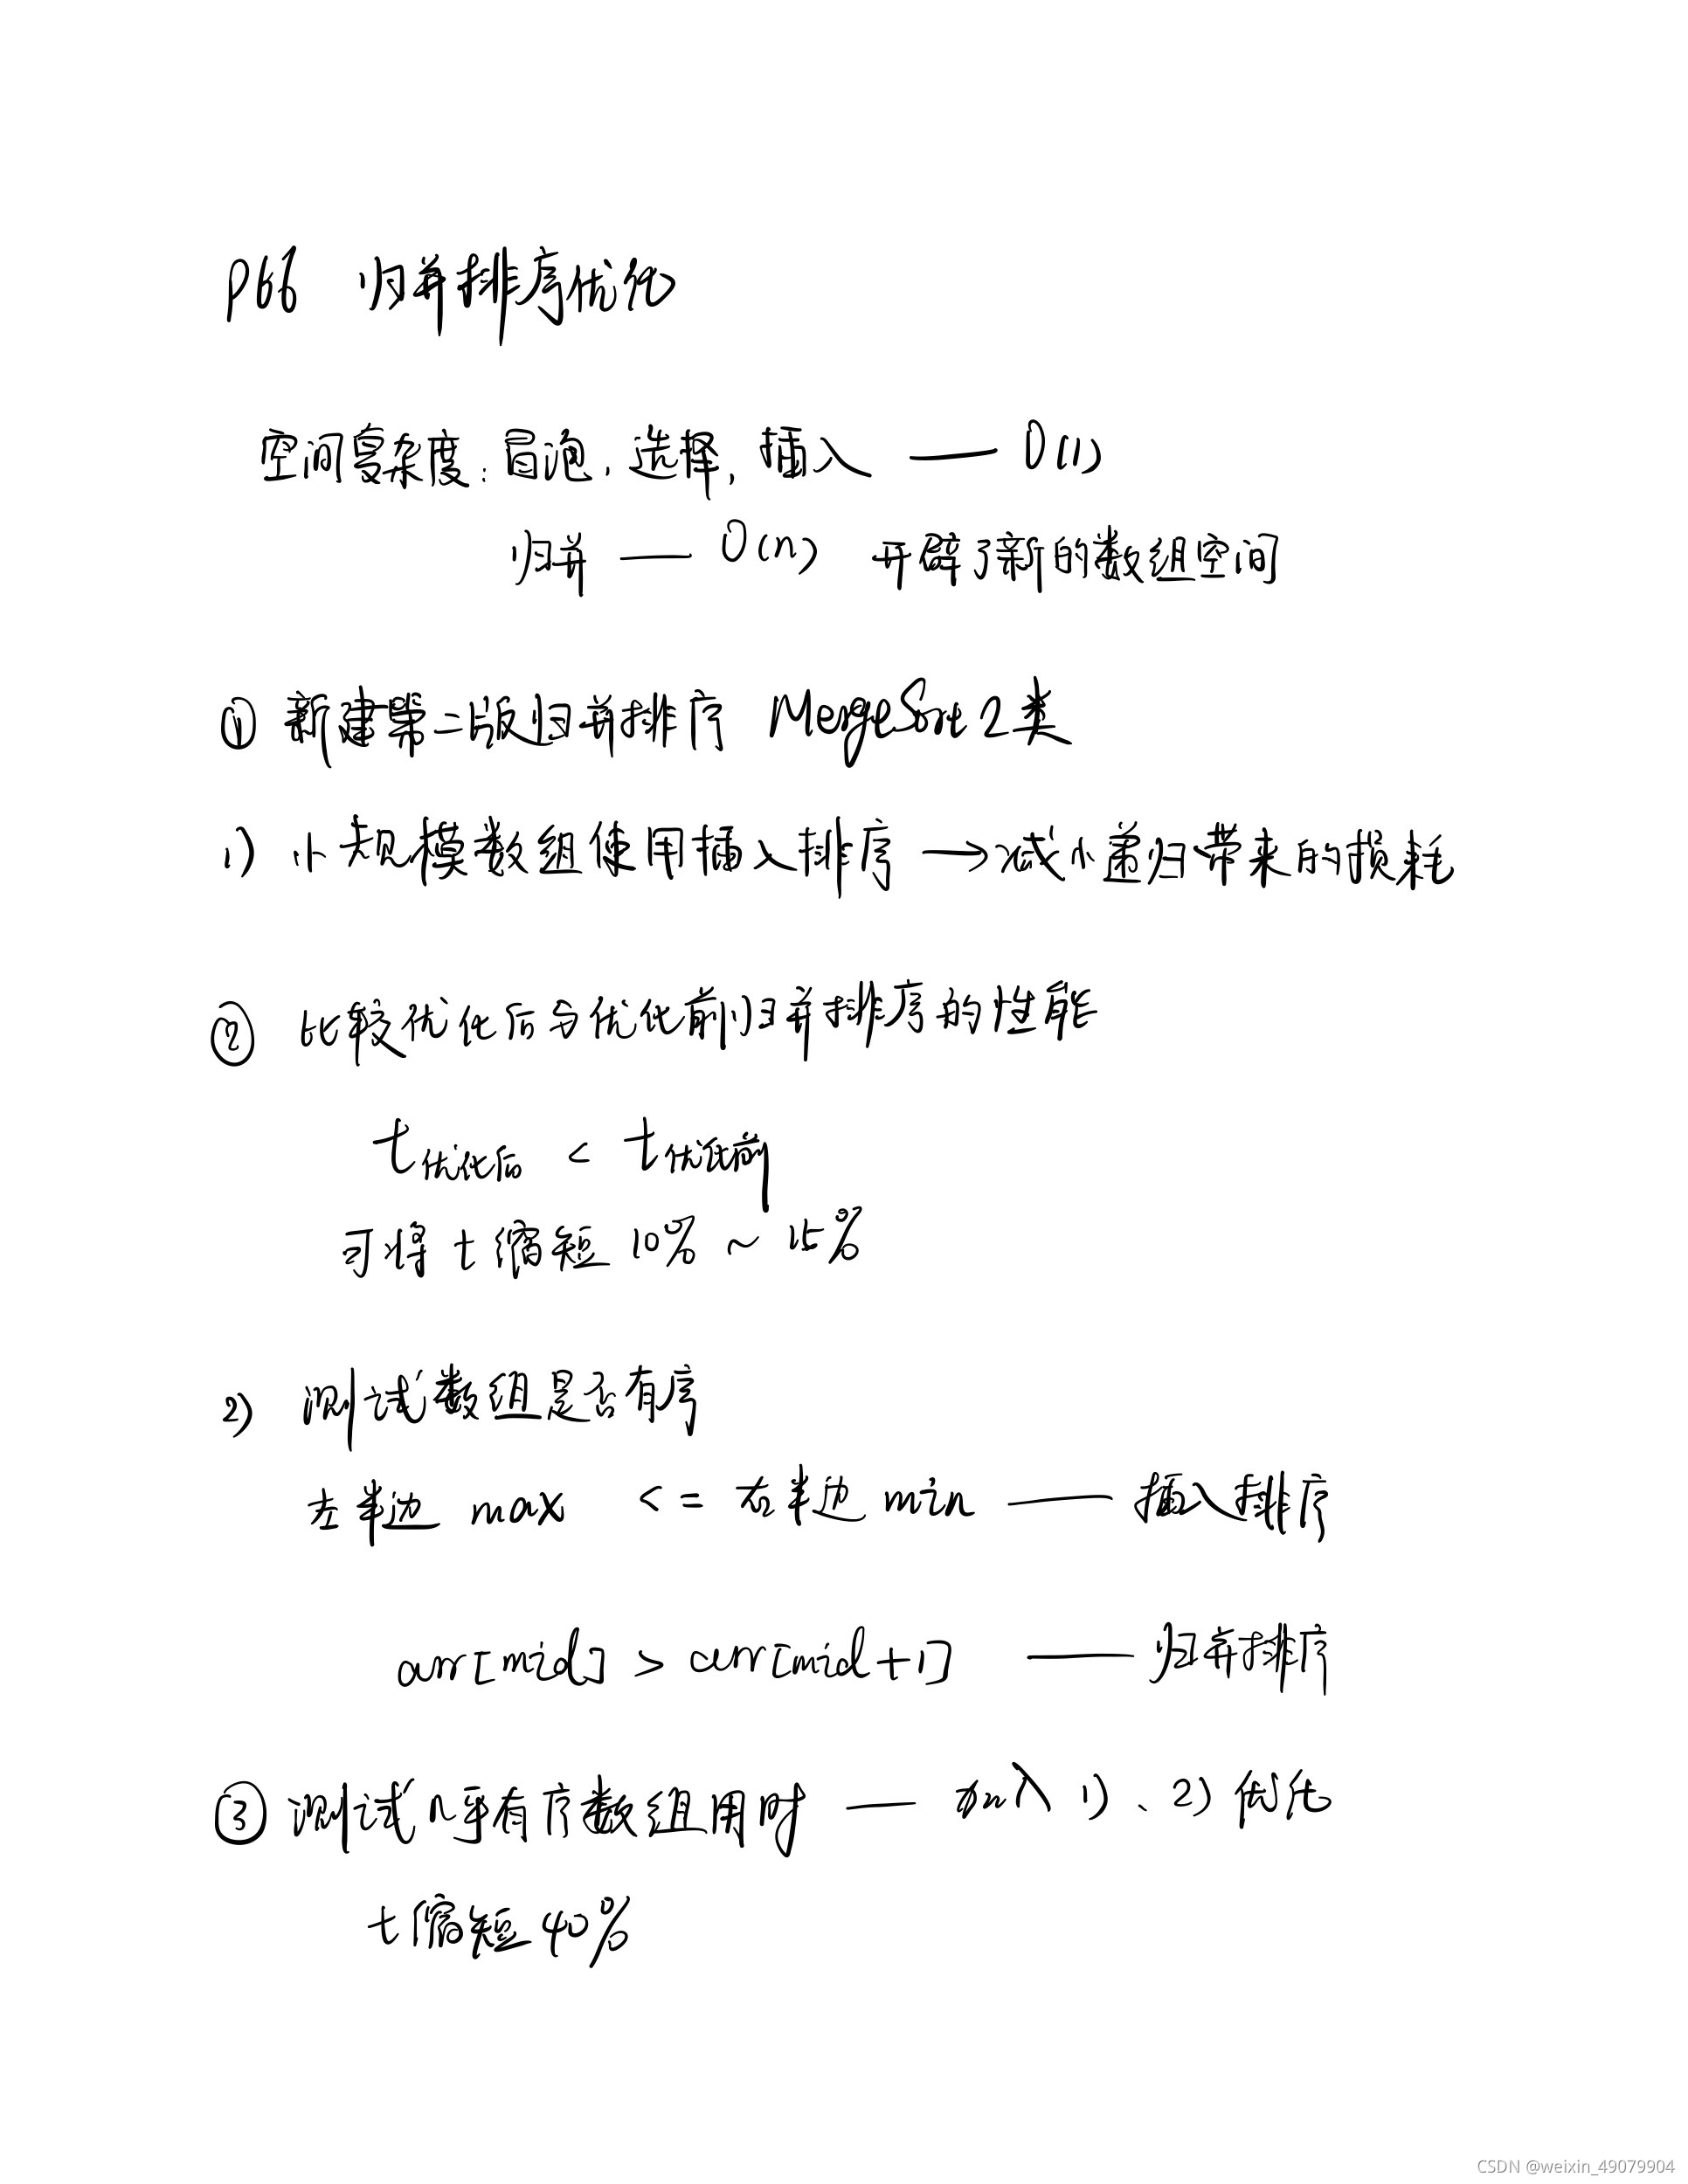 P66 归并排序优化
空间复杂度:冒泡,选择,插入 —— O(1)
归并 —— O(n) 开辟了新的数组空间
① 新建第二版归并排序 MergeSort2类
1) 小规模数组使用插入排序 → 减小递归带来的损耗
② 比较优化后与优化前归并排序的性能
t优化后 < t优化前
可将 t 缩短 10% ~ 15%
2) 测试数组是否有序
左半边 max <= 右半边 min —— 插入排序
arr[mid] > arr[mid+1] —— 归并排序
③ 测试几乎有序数组用时 —— 加入 1)、2) 优化
t 缩短 40%
CSDN @weixin_49079904